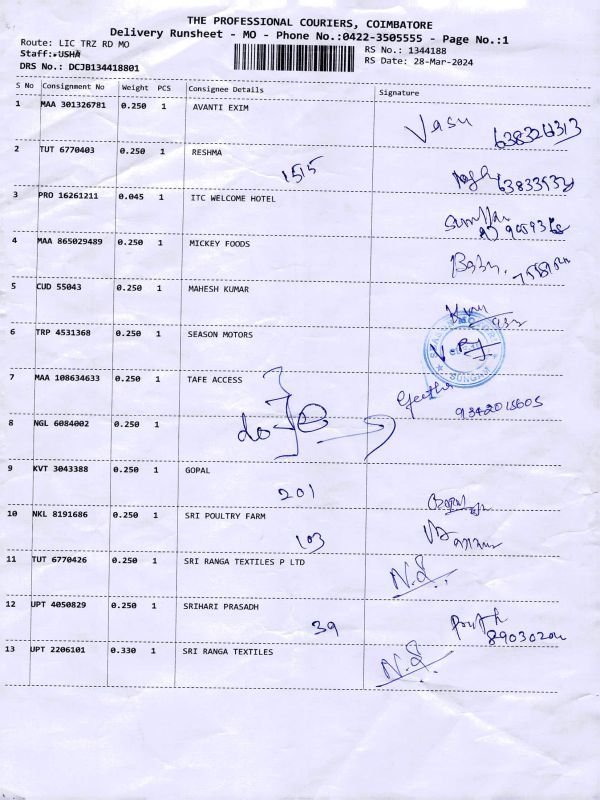 THE PROFESSIONAL COURIERS, COIMBATORE
Delivery Runsheet - MO - Phone No.:0422-3505555 - Page No.:1
Route: LIC TRZ RD MO
RS No.: 1344188
Staff: USHA
RS Date: 28-Mar-2024
DRS No.: DCJB134418801
S No Consignment No Weight PCS Consignee Details Signature
1 MAA 301326781 0.250 1 AVANTI EXIM
Vasu
2 TUT 6770403 0.250 1 RESHMA
1515
3 PRO 16261211 0.045 1 ITC WELCOME HOTEL
4 MAA 865029489 0.250 1 MICKEY FOODS
Babu
5 CUD 55043 0.250 1 MAHESH KUMAR
6 TRP 4531368 0.250 1 SEASON MOTORS
SUNGAM
7 MAA 108634633 0.250 1 TAFE ACCESS
Geetha
9342015605
8 NGL 6084002 0.250 1
do
9 KVT 3043388 0.250 1 GOPAL
201
10 NKL 8191686 0.250 1 SRI POULTRY FARM
103
11 TUT 6770426 0.250 1 SRI RANGA TEXTILES P LTD
N.S.
12 UPT 4050829 0.250 1 SRIHARI PRASADH
39
13 UPT 2206101 0.330 1 SRI RANGA TEXTILES
N.S.